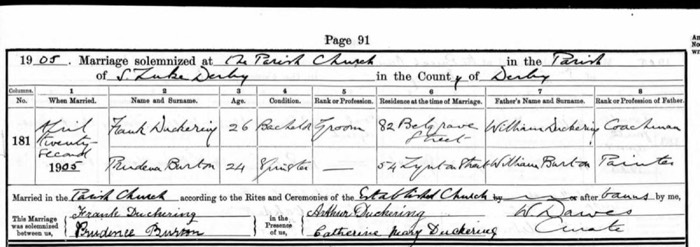 Page 91
1905. Marriage solemnized at The Parish Church in the Parish
of S. Luke Derby in the County of Derby
Columns. 1 2 3 4 5 6 7 8
No. When Married. Name and Surname. Age. Condition. Rank or Profession. Residence at the time of Marriage. Father's Name and Surname. Rank or Profession of Father.
181 April Twenty second 1905
Frank Duckering 26 Bachelor Groom 82 Belgrave Street William Duckering Coachman
Prudence Burton 24 Spinster — 54 Street William Burton Painter
Married in the Parish Church according to the Rites and Ceremonies of the Established Church by or after banns by me,
This Marriage was solemnized between us, Frank Duckering in the Presence of us, Arthur Duckering W. Dawes
Prudence Burton Catherine Mary Duckering Curate